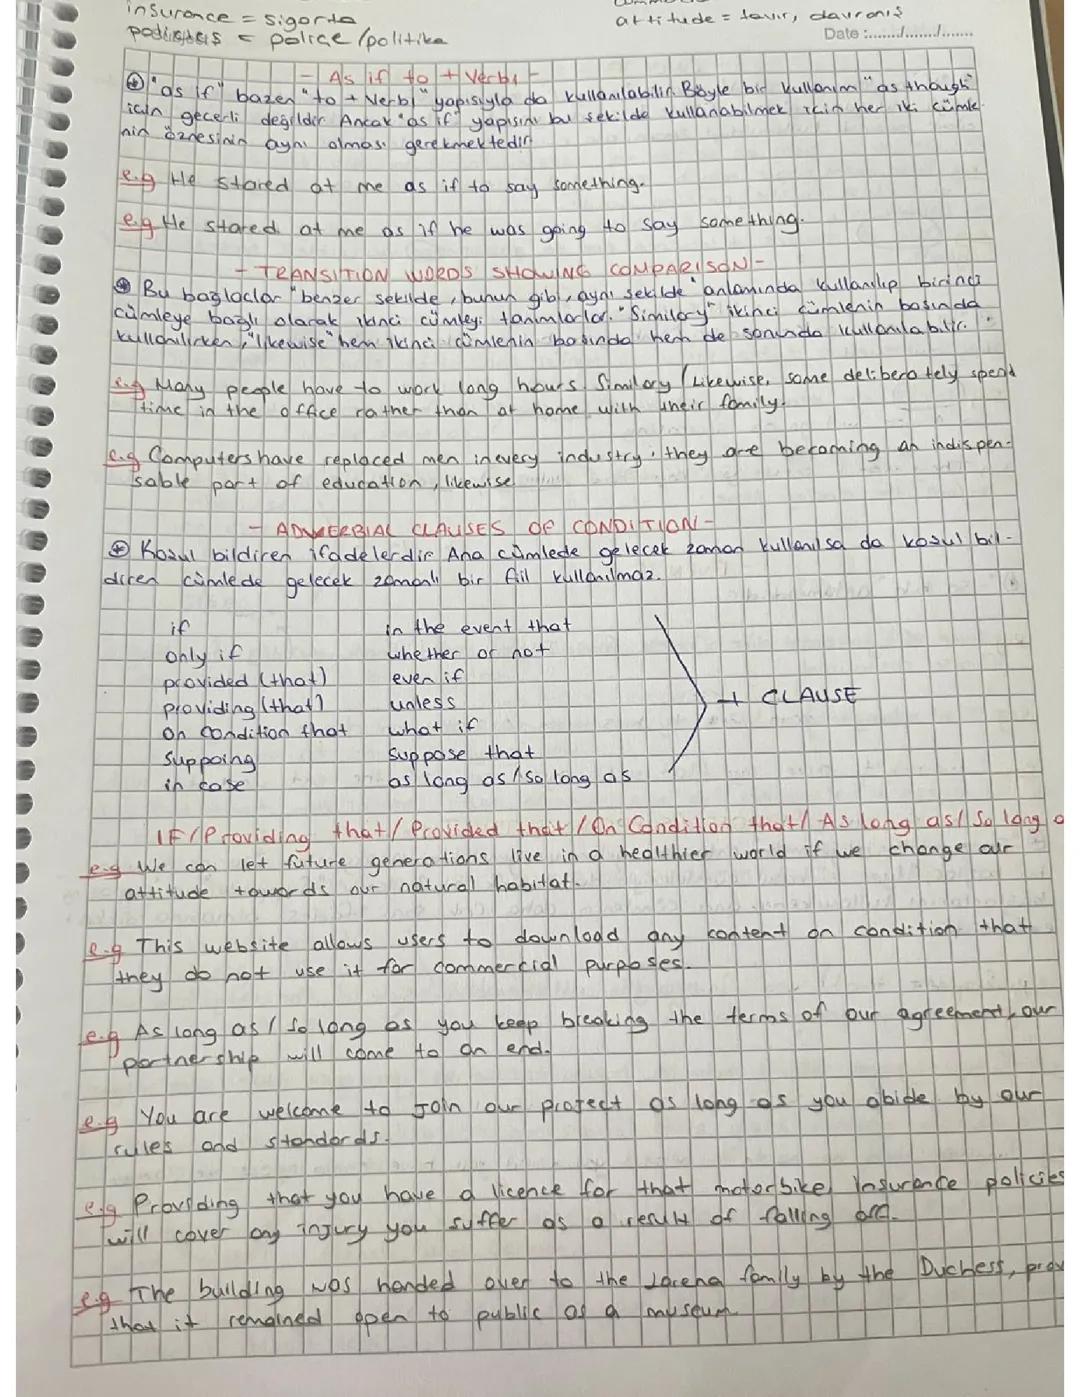 insurance = sigorta
attitude = tavır, davranış
= poliçe/politika
Date :......./......./.......
- As if to + Verb1 -
"as if" bazen "to + Verb1" yapısıyla da kullanılabilir. Böyle bir kullanım "as though"
için geçerli değildir Ancak "as if" yapısını bu şekilde kullanabilmek için her iki cümle-
nin öznesinin aynı olması gerekmektedir.
e.g He stared at me as if to say something.
e.g He stared at me as if he was going to say something.
- TRANSITION WORDS SHOWING COMPARISON -
Bu bağlaçlar "benzer şekilde, bunun gibi, aynı şekilde" anlamında kullanılıp birinci
cümleye bağlı olarak ikinci cümleyi tanımlarlar. "Similary" ikinci cümlenin başında
kullanılırken, "likewise" hem ikinci cümlenin başında hem de sonunda kullanılabilir.
e.g Many people have to work long hours. Similary / Likewise, some deliberately spend
time in the office rather than at home with their family.
e.g Computers have replaced men in every industry, they are becoming an indispen-
sable part of education, likewise
- ADVERBIAL CLAUSES OF CONDITION -
Koşul bildiren ifadelerdir Ana cümlede gelecek zaman kullanılsa da koşul bil-
diren cümlede gelecek zamanlı bir fiil kullanılmaz.
if in the event that
only if whether or not
provided (that) even if
providing (that) unless
+ CLAUSE
on condition that what if
Suppoing Suppose that
in case as long as / So long as
IF / Providing that / Provided that / On Condition that / As long as / So long a
e.g We can let future generations live in a healthier world if we change our
attitude towards our natural habitat.
e.g This website allows users to download any content on condition that
they do not use it for commercial purposes.
e.g As long as / So long as you keep breaking the terms of our agreement, our
partnership will come to an end.
e.g You are welcome to join our project as long as you abide by our
rules and standards.
e.g Providing that you have a licence for that motorbike, insurance policies
will cover any injury you suffer as a result of falling
e.g The building was handed over to the family by the Duchess, prov
that it remained open to public as a museum